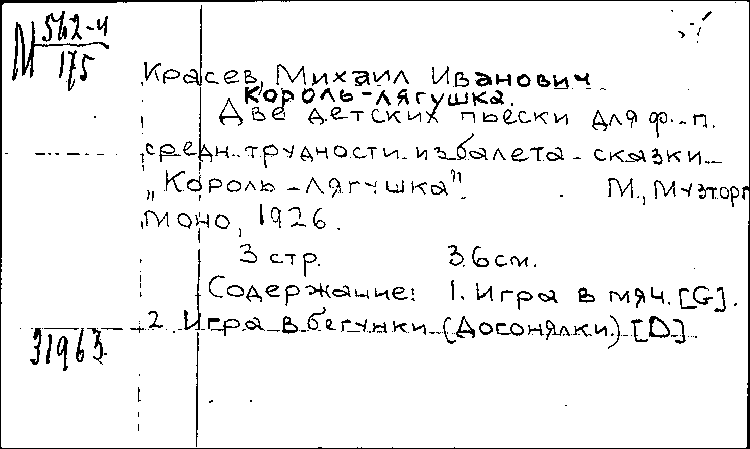 М 562-4
175
Красев, Михаил Иванович
Король-лягушка.
Две детских пьески для ф.-п.
средн. трудности из балета-сказки
„Король-лягушка". М., Музторг
моно, 1926.
3 стр. 36 см.
Содержание: 1. Игра в мяч. [G].
2 Игра в бегунки (Догонялки.) [D]
31963